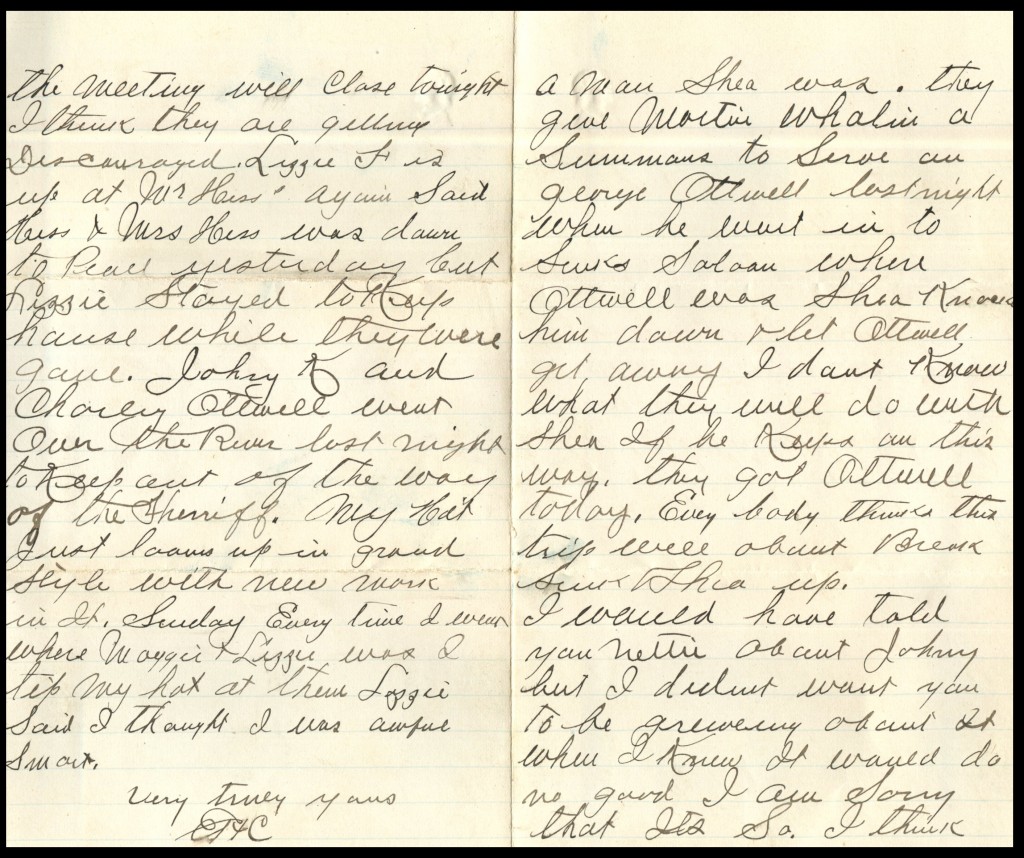 the meeting will Close tonight
I think they are getting
Discouraged. Lizzie F is
up at Mr Hess" again Said
Hess & Mrs Hess was down
to Pearl yesterday but
Lizzie Stayed to Keep
house while they were
gone. Johny K and
Charley Ottwell went
Over the River last night
to Keep out of the way
of the Sherriff. My Hat
Just looms up in grand
style with new work
in It. Sunday Every time I went
where Maggie & Lizzie was I
tip my hat at them Lizzie
Said I thought I was awful
Smart.
very truley yours
ETHC
a man Shea was. they
give Martin Whalin a
Summans to Serve on
george Ottwell last night
when he went in to
Sinks Saloon where
Ottwell was Shea Knocks
him down & let Ottwell
get away I dont Know
what they will do with
Shea If he Keeps on this
way. they got Ottwell
today. Evey body thinks this
trip will about Break
Sink & Shea up.
I would have told
you Nettie about Johny
but I didnt want you
to be grieveing about It
when I Knew It would do
no good I am Sorry
that Its So. I think